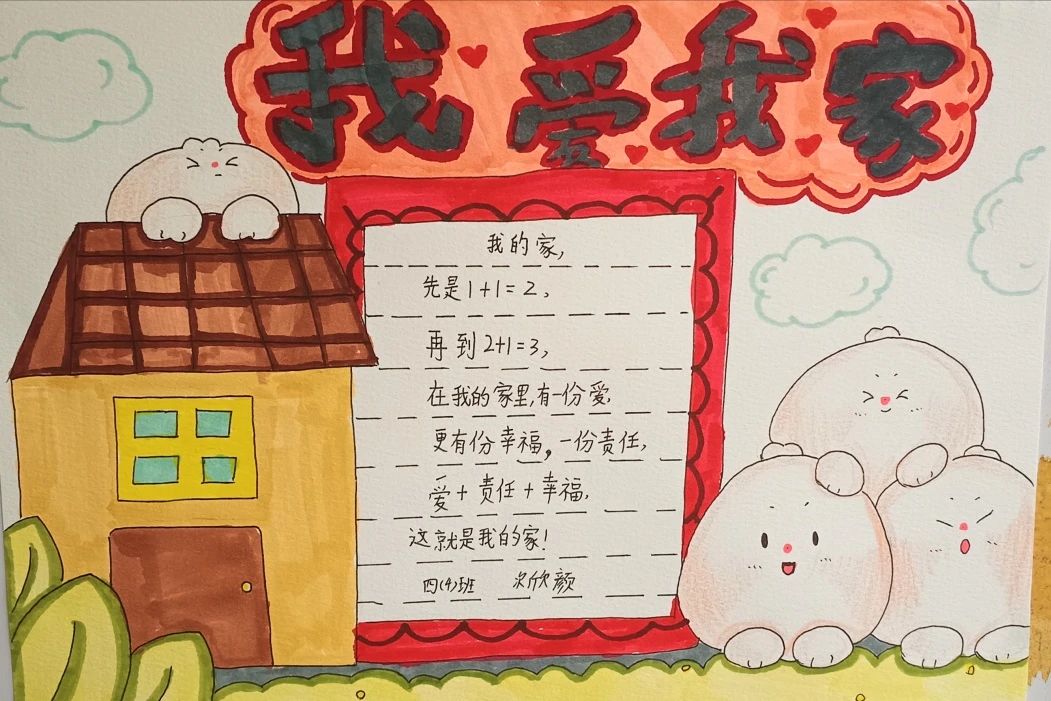 我爱我家
我的家,
先是1+1=2,
再到2+1=3,
在我的家里,有一份爱,
更有份幸福,一份责任,
爱+责任+幸福,
这就是我的家!
四(4)班 次欣颜